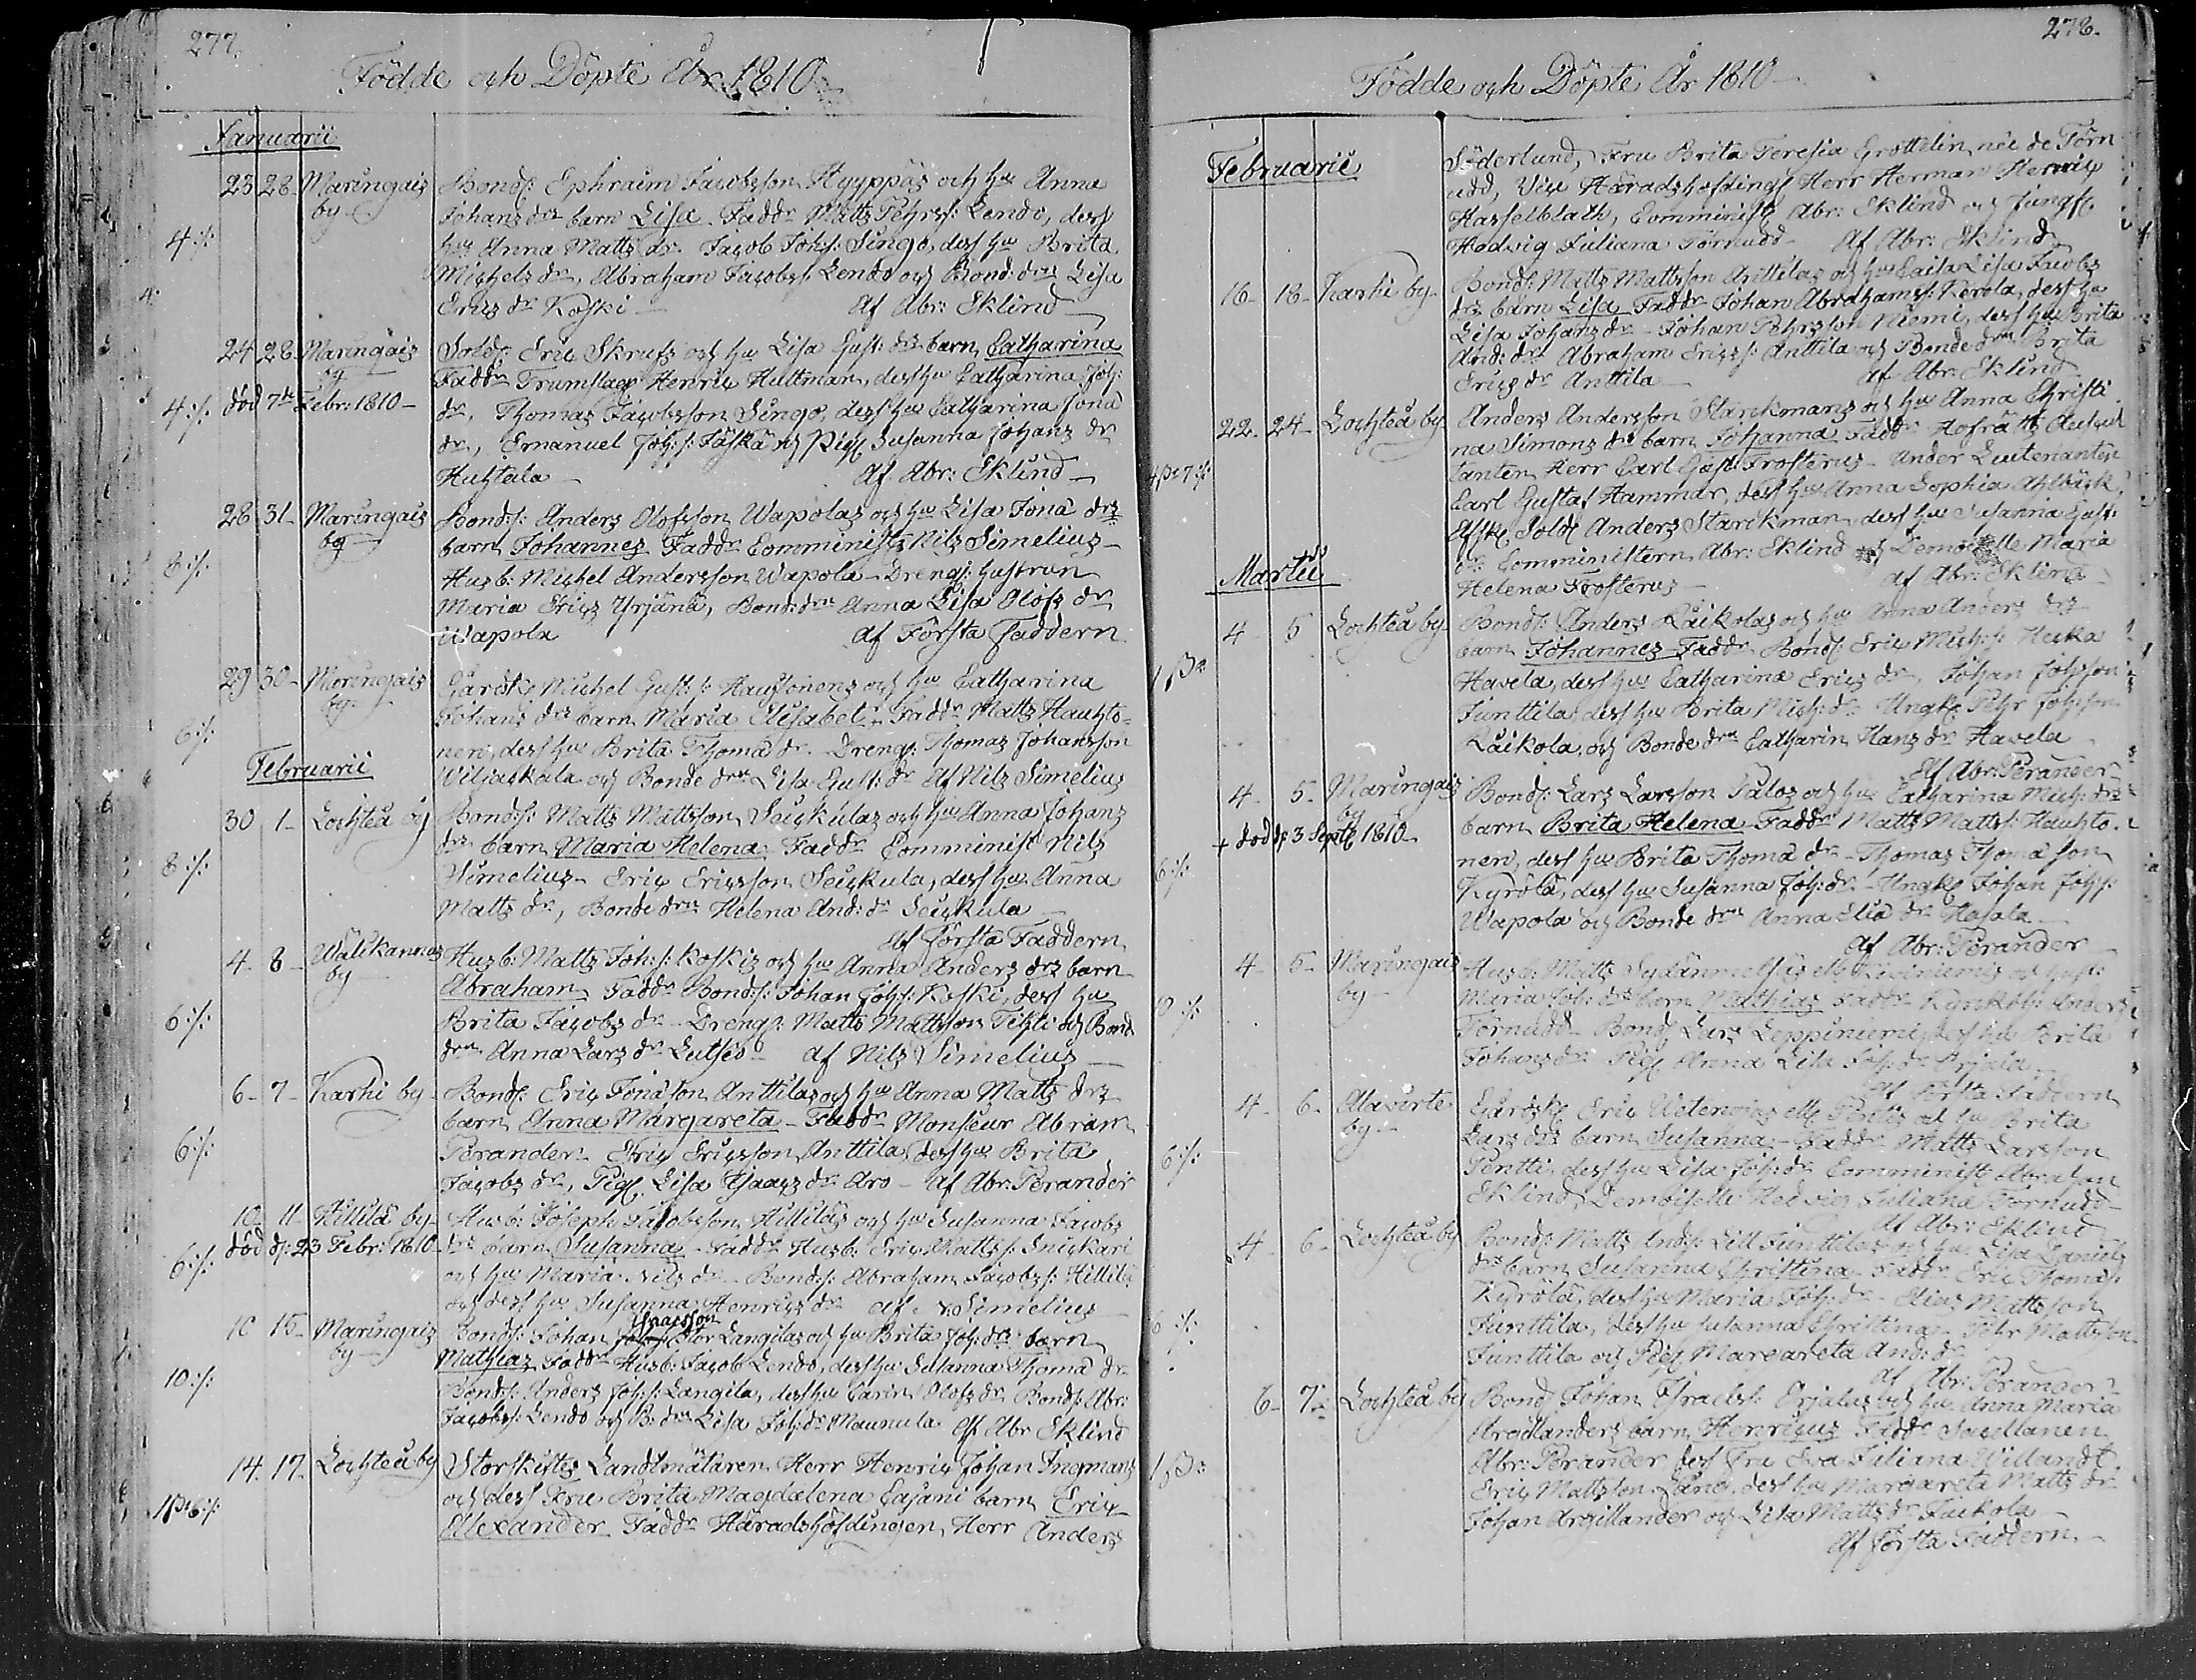 277.
Födde och Döpte År 1810
Januarii
23 28 Maringais by
Bonds: Ephraim Jacobsson Hyyppäs och hu Anna
Johans drs barn Lisa. Faddr Matts Pehrss: Lendo, dess
hu Anna Matts dr. Jacob Johs: Singo, dess hu Brita
Michels dr, Abraham Jacobss: Lendo och Bond: drn Lisa
Erics dr Koski - Af Abr: Eklind
4:/:
24 28 Maringais by
Sold: Eric Skrufs och hu Lisa Gust: drs barn Catharina
Faddr Trumslag: Henric Hultman, dess hu Catharina Joh:
död 7de Febr: 1810 -
4:/:
dr, Thomas Jacobsson Singo, dess hu Catharina Jona
dr, Emanuel Joh: s: Jäskä och Pig: Susanna Johans dr
Huhtala - Af Abr: Eklind -
28 31 Maringais by
Bonds: Anders Olofsson Wapolas och hu Lisa Jona drs
barn Johannes Faddr Comminist: Nils Simelius -
8:/:
Husb: Michel Andersson Wapola - Drengs: hustrun
Maria Erics Yrjänä, Bond: drn Anna Lisa Olofs dr
Wapola af Första Faddern
29 30 Maringais by
Gårdsk: Michel Gust: s: Hautonens och hu Catharina
Johans drs barn Maria Elisabet - Faddr Matts Hauto-
6:/:
nen, dess hu Brita Thoma dr. Drengs: Thomas Johansson
Februarii
Wiljaskala och Bonde drn Lisa Gust: dr Af Nils Simelius
30 1 Lochteå by
Bonds: Matts Mattsson Seickulas och hu Anna Johans
drs barn Maria Helena Faddr Comminist: Nils
8:/:
Simelius - Eric Ericsson Seickula, dess hu Anna
Matts dr, Bonde drn Helena And: dr Seickula
Af Första Faddern
4 8 Wälikannus by
Husb: Matts Joh: s: Koskis och hu Anna Anders drs barn
Abraham Faddr Bonds: Johan Johs: Koski, dess hu
6:/:
Brita Jacobs dr - Drengs: Matts Mattsson Tikli och Bond
drn Anna Lars dr Lutjes - af Nils Simelius
6 7 Karhi by
Bonds: Eric Jonasson Anttilas och hu Anna Matts drs
barn Anna Margareta - Faddr Monsieur Abram
6:/:
Perander - Eric Ericsson Anttila, dess hu Brita
Jacobs dr, Pig: Lisa Isaacs dr Aro - af Abr: Perander
10 11 Hillilä by
Husb: Joseph Jacobsson Hilliläs och hu Susanna Jacobs
död d: 23 Febr: 1810
drs barn Susanna - Faddr Husb: Eric Mattss: Snickari
6:/:
och hu Maria Nils dr - Bonds: Abraham Jacobss: Hillilä
och dess hu Susanna Henrics dr af N: Simelius
10 15 Maringais by
Isaacsson
Bonds: Johan Stor Langilas och hu Brita Joh: drs barn
Mathias Faddr Husb: Jacob Lendo, dess hu Susanna Thoma dr
10:/:
Bonds: Anders Johs: Langila, dess hu Carin Olofs dr, Bonds: Abr:
Jacobs: Lendo och B: drn Lisa Joh: dr Maunula af Abr Eklind
14. 17. Lochteå by
Storskiftes Landtmätaren Herr Henric Johan Ingmans
och dess Fru Brita Magdalena Cajani barn Eric
Allexander Faddr Häradshöfdingen Herr Anders
278.
Födde och Döpte År 1810
Februarii
Söderlund, Fru Brita Teresia Grottelin née de Törn
udd, Vice Häradshöfdingen Herr Herman Henric
Hasselblath, Comminist: Abr: Eklind och Jungf:
Hedvig Juliana Törnudd - Af Abr: Eklind
16 - 18 - Karhi by
Bonds: Matts Mattsson Anttilas och hu Caisa Lisa Jacobs
drs barn Lisa Faddr Johan Abrahamss: Korola, dess hu
Lisa Johans dr - Johan Pehrsson Niemi, dess hu Brita
And: dr Abraham Ericss: Anttila och Bonde drn Brita
Erics dr Anttila - af Abr: Eklind
22. 24 Lochteå by
Anders Andersson Starckmans och hu Anna Christi
na Simons drs barn Johanna Faddr Hofrätts Auscul
tanten Herr Carl Gust: Frosterus - Under Lieutenanten
Carl Gustaf Hammar, dess hu Anna Sophia Ahlbäck,
Afsk: Sold: Anders Starckman, dess hu Susanna Gust:
dr Comministern Abr: Eklind och Demoiselle Maria
Helena Frosterus - af Abr: Eklind
Martii
4 5 Lochteå by
Bonds: Anders Räikolas och hu Anna Anders drs
barn Johannes Faddr Bonds: Eric Mich: s:
Havela, dess hu Catharina Erics dr, Johan Johsson
Junttila, dess hu Brita Mich: dr Ungk: Pehr Johsson
Räikola, och Bonde drn Catharin Hans dr Havela
Af Abr: Perander
4 5 Maringais by
Bonds: Lars Larsson Palos och hu Catharina Mich: drs
+ död d: 3 Sept: 1810
barn Brita Helena Faddr Matts Matts: Hauto-
6:/:
nen, dess hu Brita Thoma dr - Thomas Thoma son
Kyrölä, dess hu Susanna Joh: dr - Ungk: Johan Johs:
Wapola och Bonde drn Anna Elia dr Hasala
af Abr: Perander
4 5 Maringais by
Husb: Matts Sydänmetsäs och hust:
Maria Joh: drs barn Mathias Faddr Anders
Törnudd - Bonds Lars Leppiniemi, dess hu Brita
Johans dr Pig: Anna Lisa Joh: dr Orjala
af Första Faddern
4 6 Alavirte by
Gårdsk: Eric och hu Brita
Lars drs barn Susanna - Faddr Matts Larsson
6:/:
Pentti, dess hu Lisa Joh: dr Comminist: Abraham
Eklind, Demoiselle Hedvig Juliana Törnudd
af Abr: Eklind
4 6 Lochteå by
Bonds: Matts Ands: Lill Junttilas och hu Lisa Daniels
drs barn Susanna Christina Faddr Eric Thomas:
Kyrölä, dess hu Maria Joh: dr - Elias Mattsson
6:/:
Junttila, dess hu Susanna Christina - Pehr Mattsson
Junttila och Pig: Margareta And: dr
af Abr: Perander
6 7 Lochteå by
Bonds Johan Israelss: Orjalas och hu Anna Maria
barn Henricus Faddr Sacellanen
Abr: Perander dess Fru Eva Juliana Willandt
Eric Mattsson Lång, dess hu Margareta Matts dr
Johan Argillander och Lisa Matts dr Juckola
Af Första Faddern